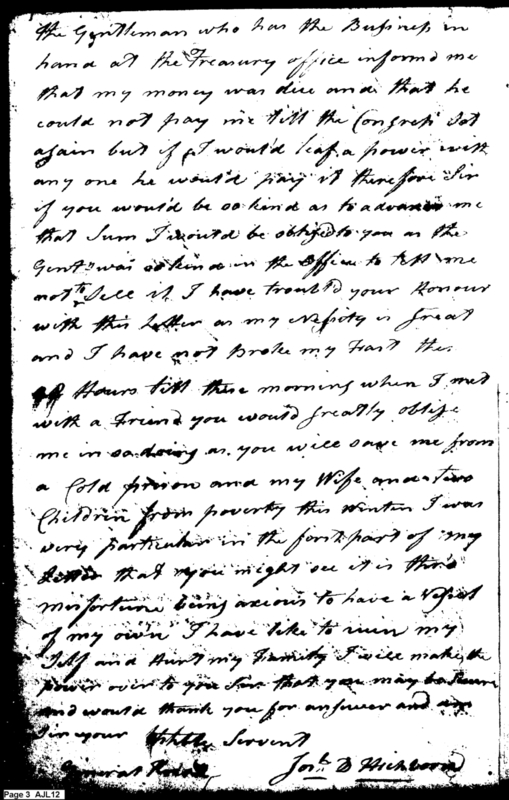 the Gentleman who has the Business in
hand at the Treasury office informd me
that my money was due and that he
could not pay me till the Congress Sot
again but if I would leaf a power with
any one he would pay it therefore Sir
if you would be so kind as to advance me
that Sum I would be obliged to you as the
Gent.n was so kind in the Office to tell me
not to Sell it I have troubl'd your Honour
with this Letter as my Nessity is Great
and I have not Broke my Fast the
Hours till these morning when I met
with a Friend you would greatly oblige
me in so doing as you will save me from
a Cold prison and my Wife and two
Children from poverty this Winter I was
very particular in the forst part of my
that you might see it is thro
misfortune being axious to have a Vessel
of my own I have like to ruin my
Self and Hurt my Family I will make the
power over to you Sir that you may be Secure
and would thank you for answer and am
Sir your Servent
General Jos.h B Hichborn
Page 3 AJL12